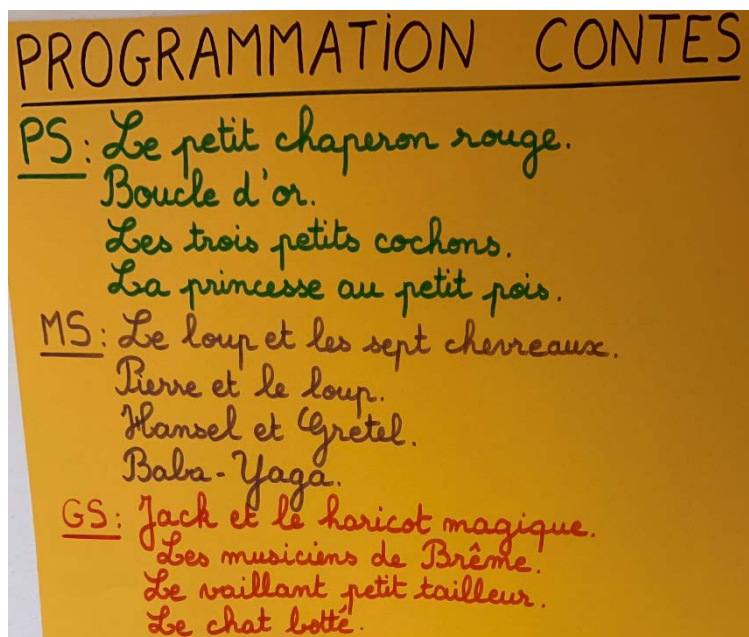 PROGRAMMATION CONTES
PS: Le petit chaperon rouge.
Boucle d'or.
Les trois petits cochons.
La princesse au petit pois.
MS: Le loup et les sept chevreaux.
Pierre et le loup.
Hansel et Gretel.
Baba-Yaga.
GS: Jack et le haricot magique.
Les musiciens de Brême.
Le vaillant petit tailleur.
Le chat botté.